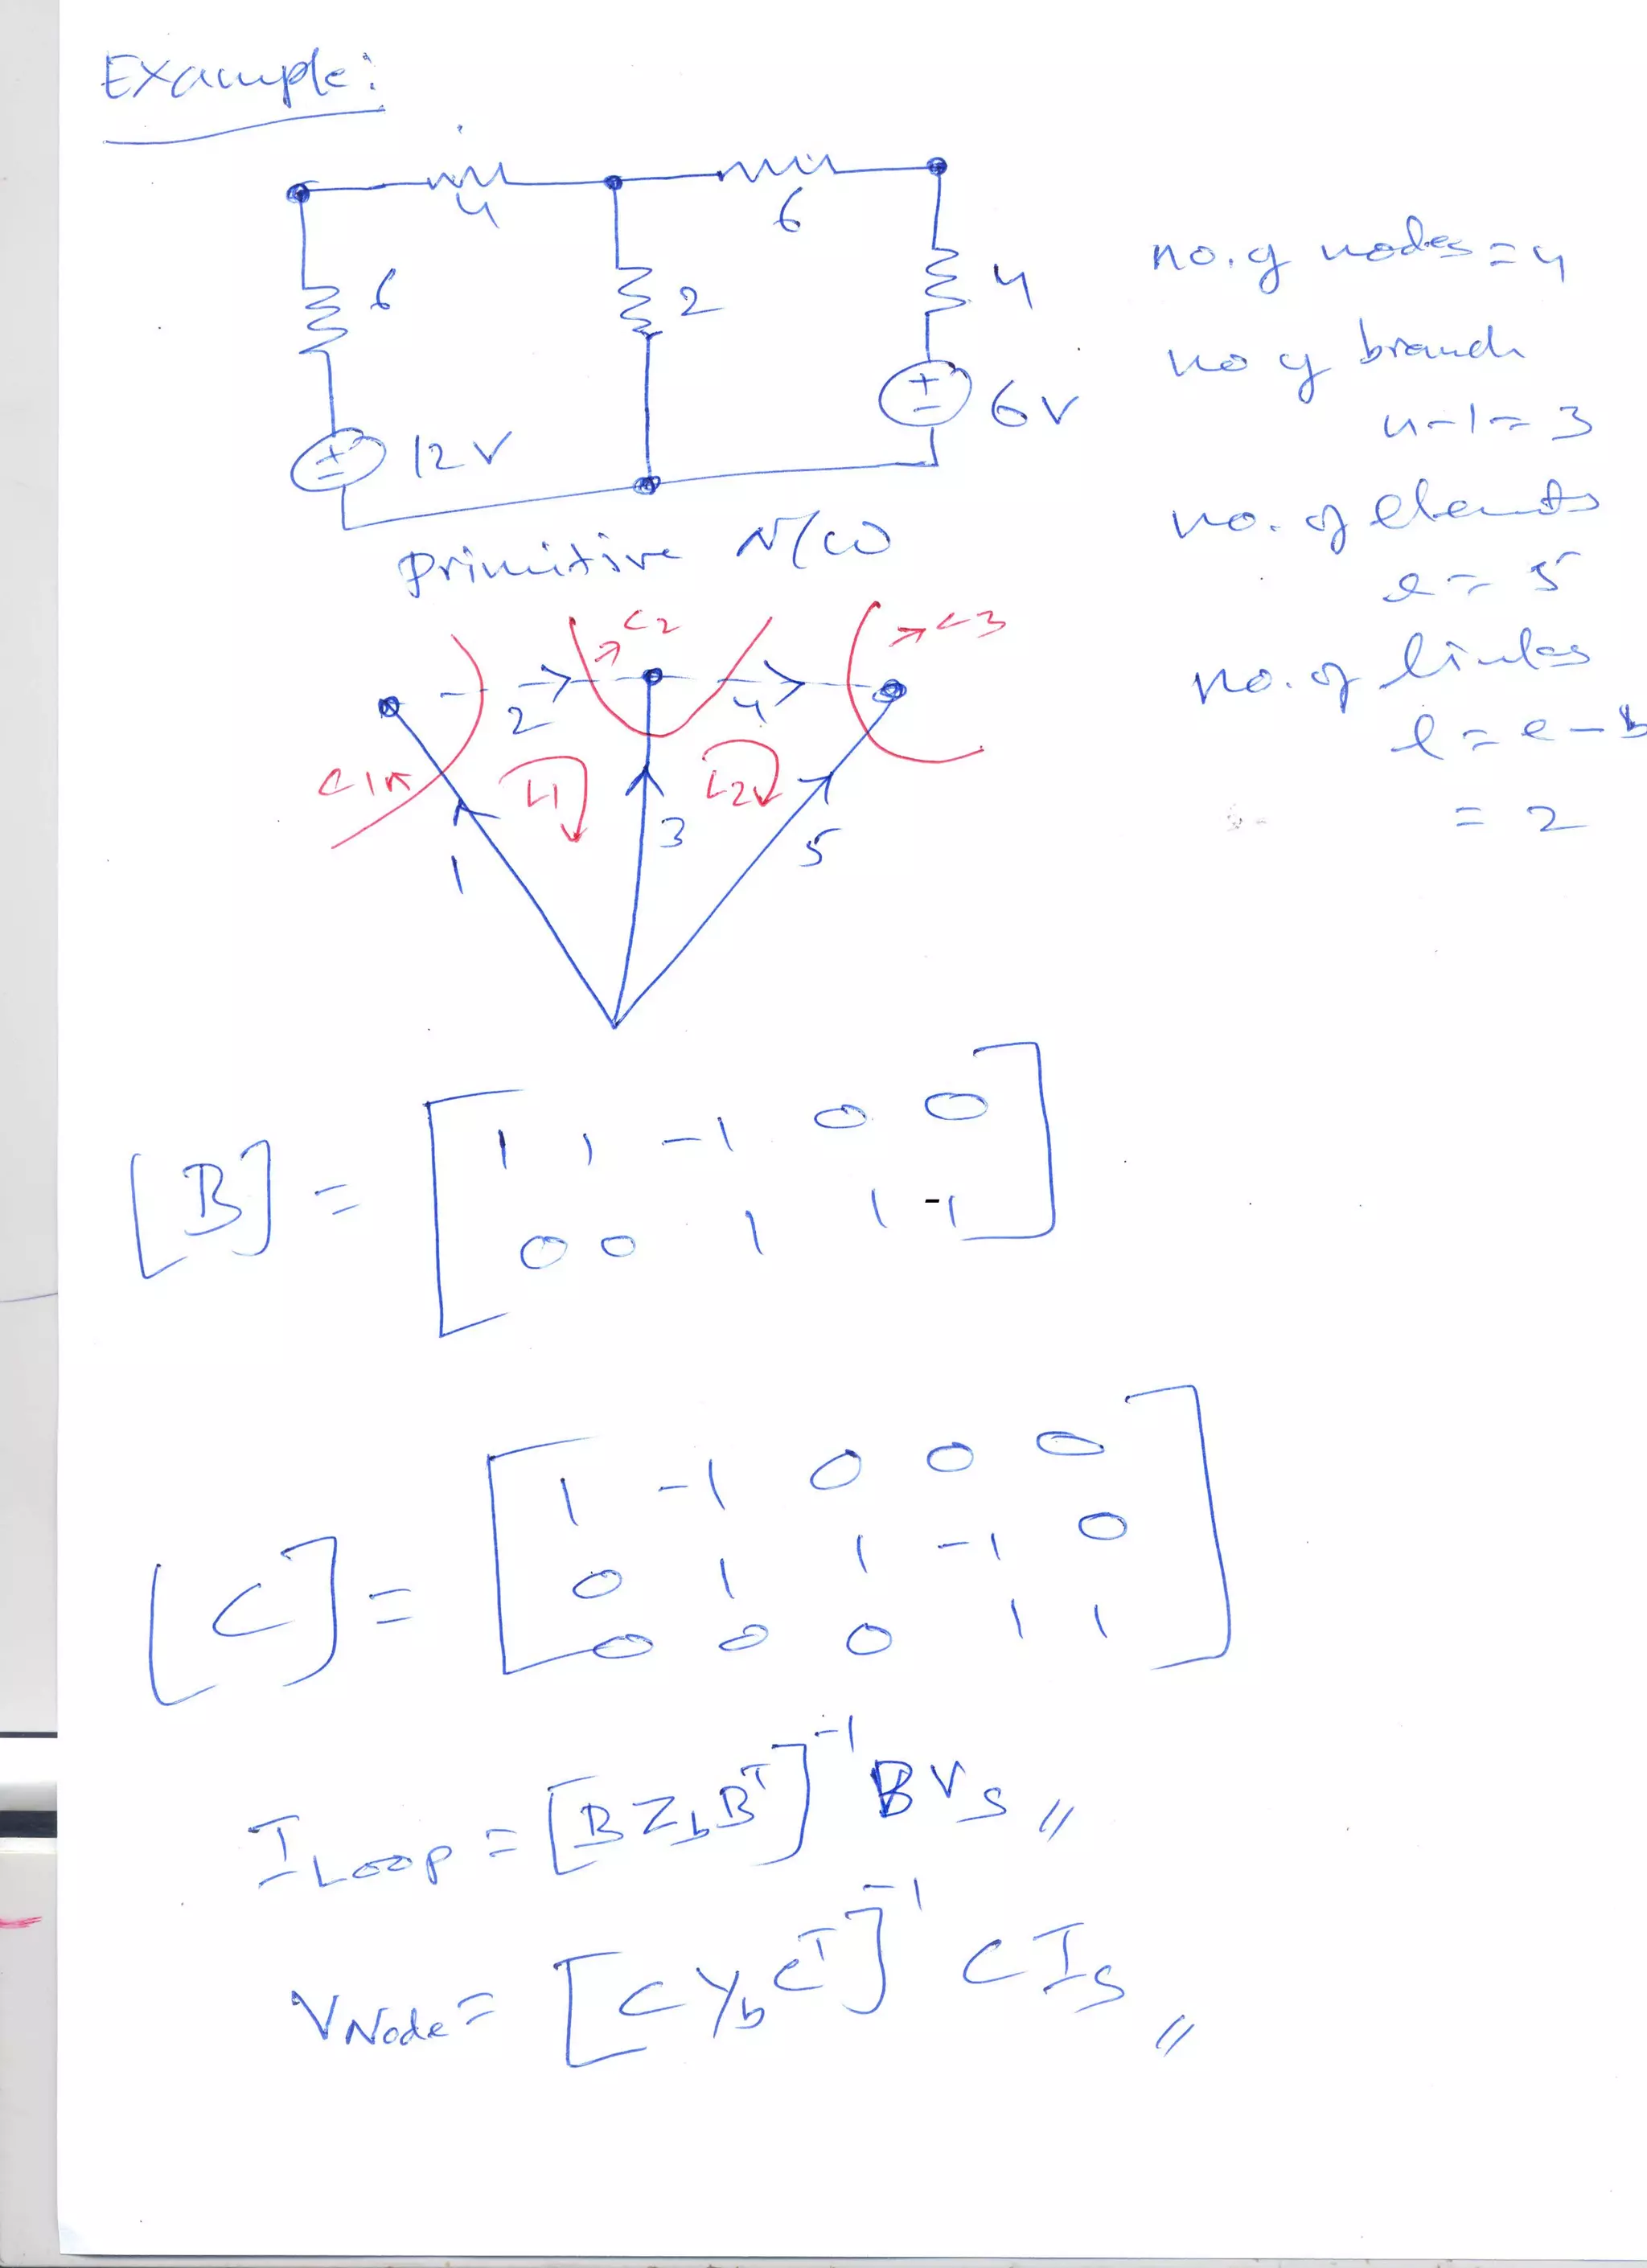 Example:
4
6
6
2
4
12V
6V
no. of nodes = 4
no of branch
n-1 = 3
no. of elements
e = 5
no. of links
l = e - b
= 2
Primitive N/W
C1
C2
C3
2
4
L1
L2
1
3
5
[B] = [ 1 1 -1 0 0
0 0 1 1 -1 ]
[C] = [ 1 -1 0 0 0
0 1 1 -1 0
0 0 0 1 1 ]
I Loop = [B Z_b B^T]^-1 B V_S //
V Node = [C Y_b C^T]^-1 C I_S //